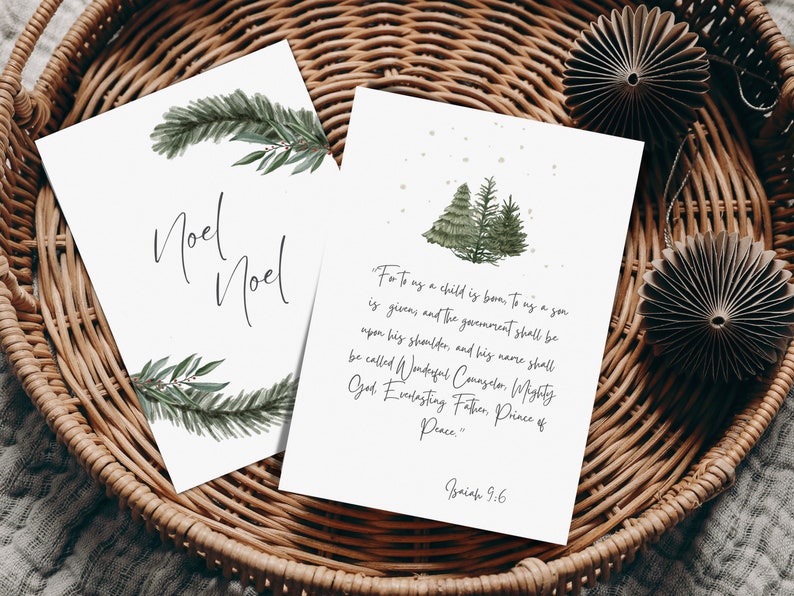 Noel
Noel
"For to us a child is born, to us a son
is given; and the government shall be
upon his shoulder, and his name shall
be called Wonderful Counselor, Mighty
God, Everlasting Father, Prince of
Peace."
Isaiah 9:6